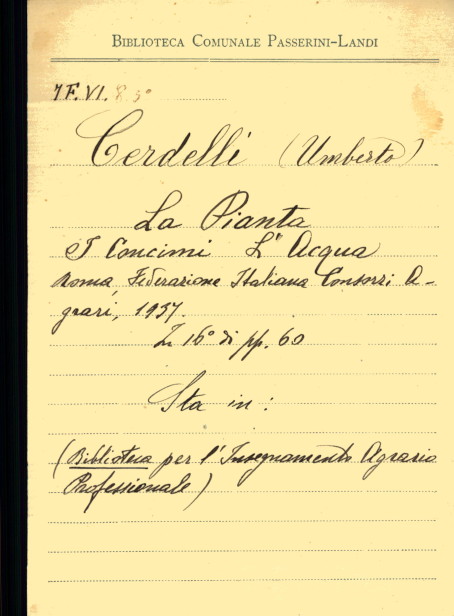 BIBLIOTECA COMUNALE PASSERINI-LANDI
7F.VI.
Cerdelli (Umberto)
La Pianta
I Concimi L'Acqua
Roma, Federazione Italiana Consorzi A-
grari, 1937.
In 16° di pp. 60
Sta in:
(Biblioteca per l'Insegnamento Agrario
Professionale)